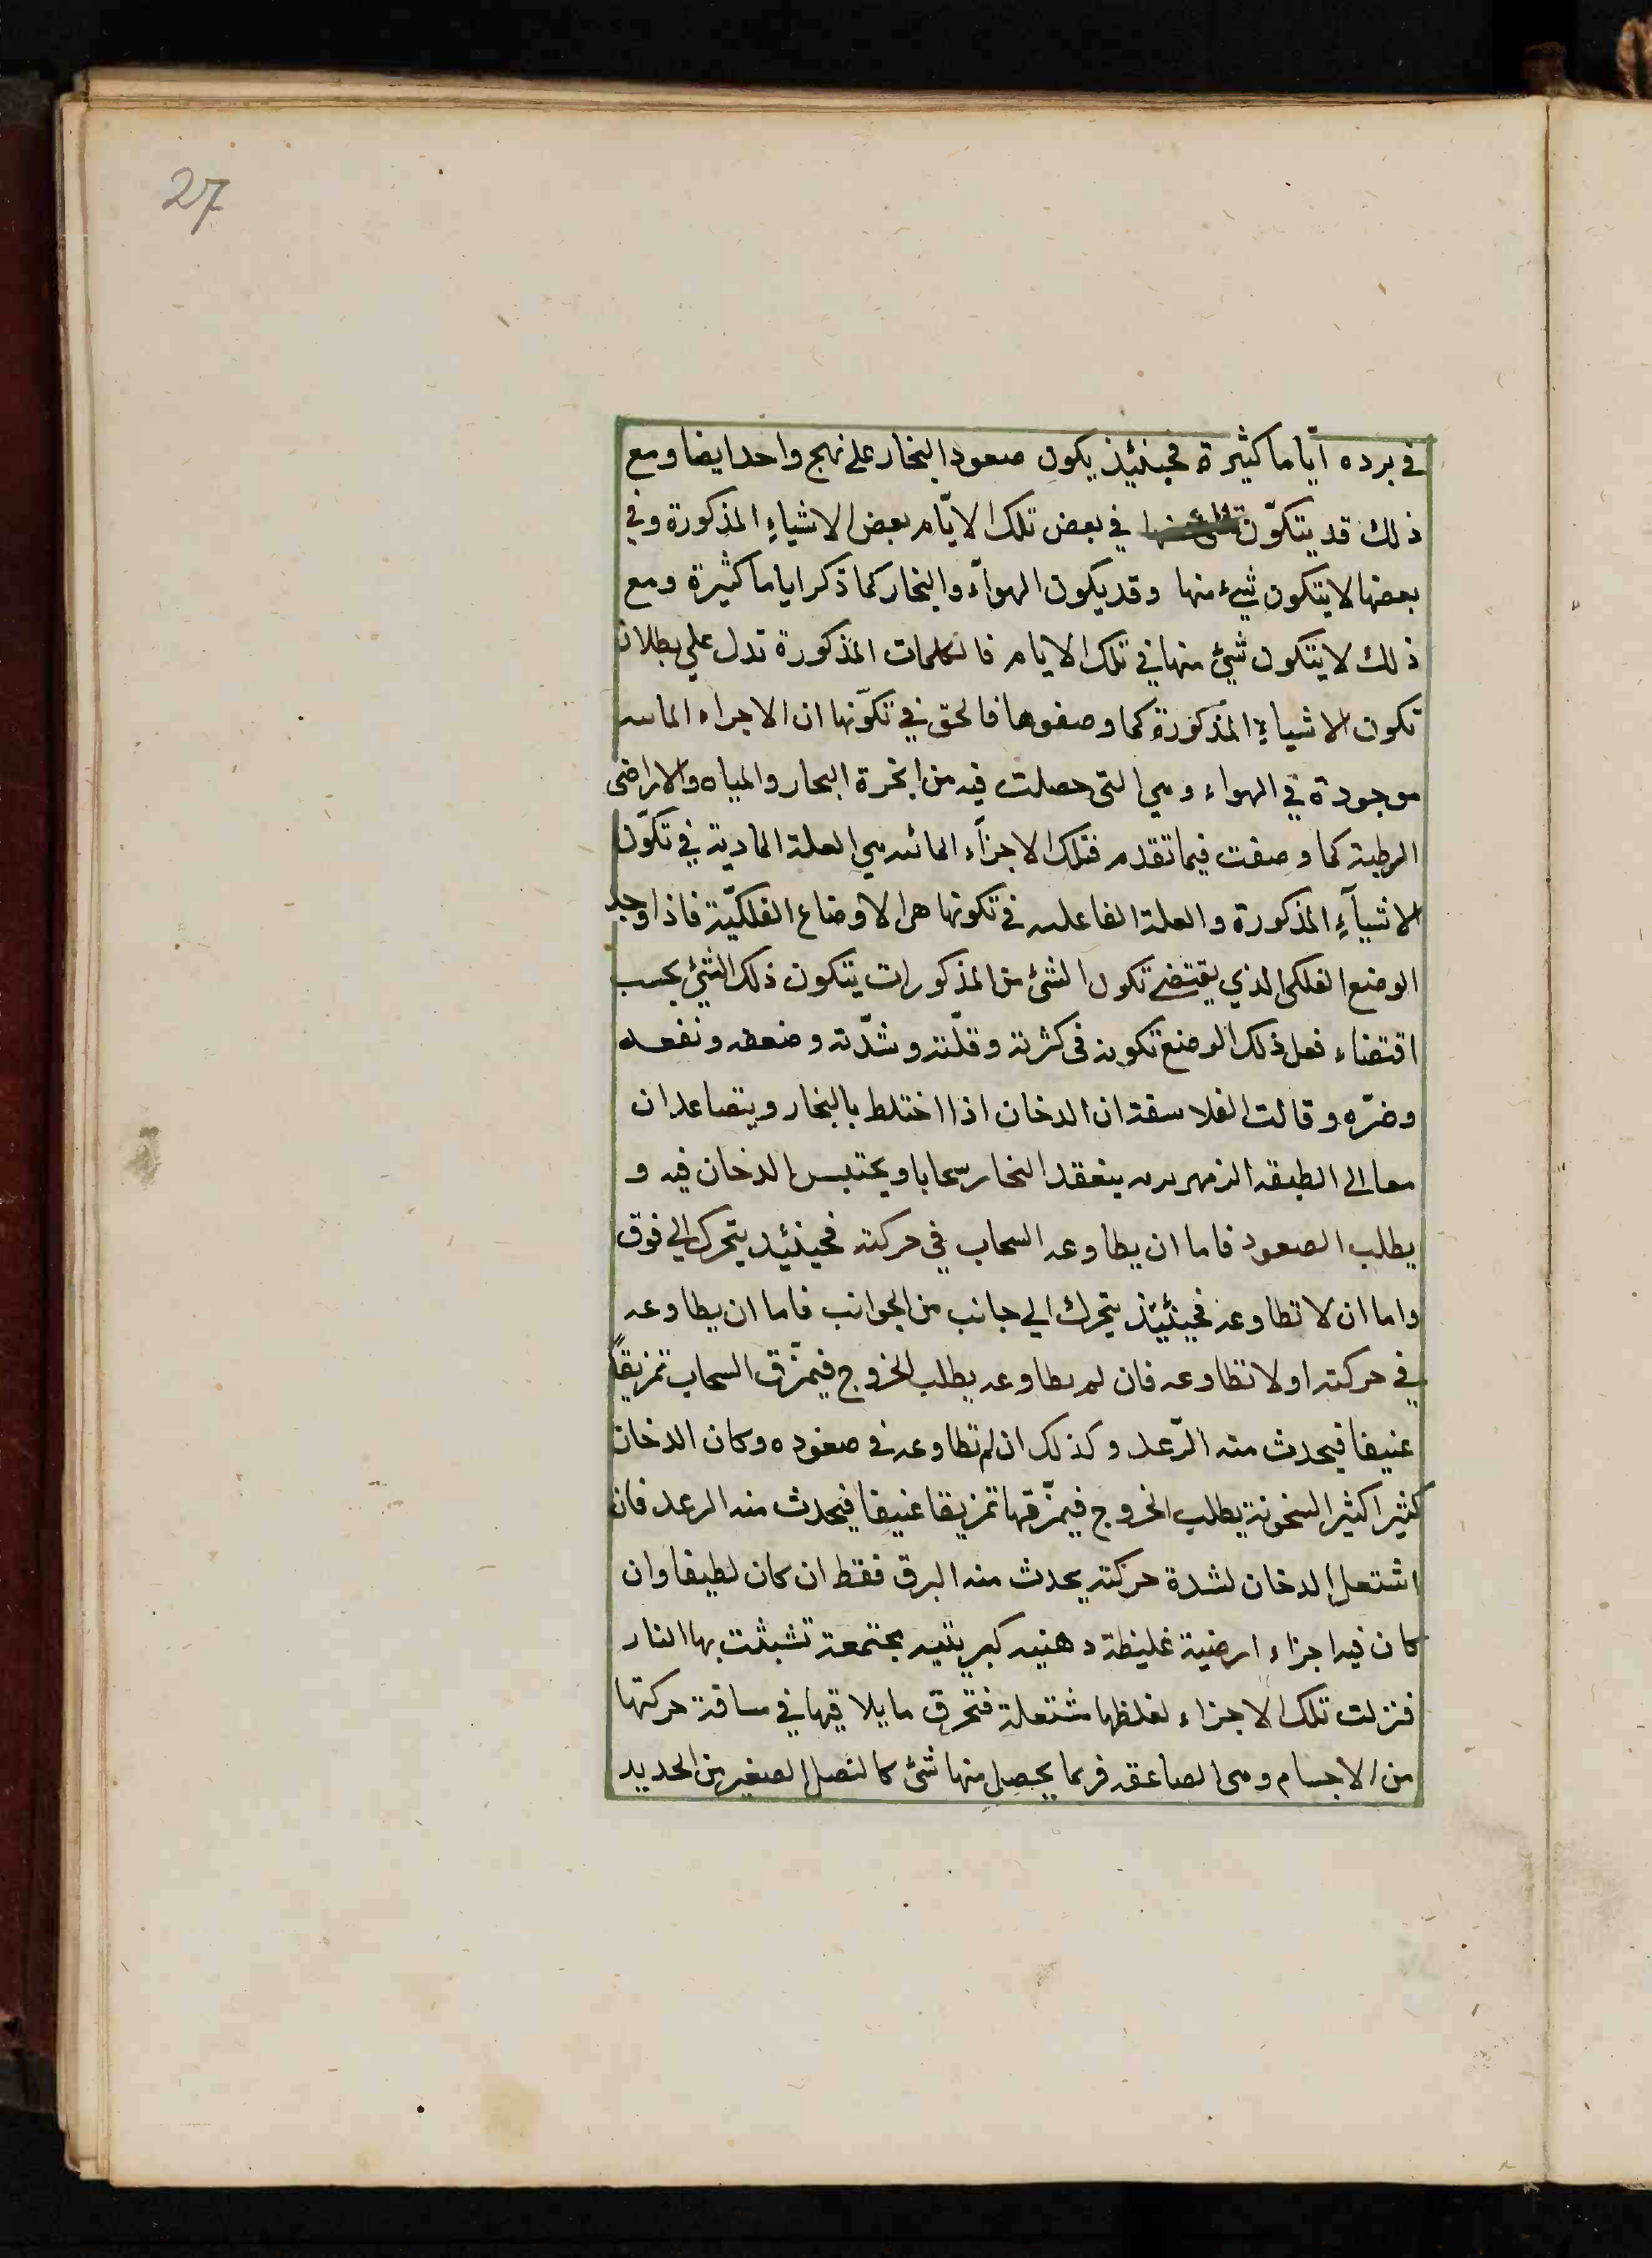 27
في برده ايّاما كثيرة فحينئذ يكون صعود البخار على نهج واحد ايضا ومع
ذلك قد يتكوّن في بعض تلك الايّام بعض الاشياءِ المذكورة وفي
بعضها لا يتكون شيء منها وقد يكون الهوآء والبخار كما ذكر اياما كثيرة ومع
ذلك لا يتكون شيئ منها في تلك الايام فالكلمات المذكورة تدل علي بطلان
تكون الاشياءِ المذكورة كما وصفوها فالحق في تكوّنها ان الاجراء المائىه
موجودة في الهواء وهي التي حصلت فيه من ابخرة البحار والمياه والاراضى
الرطبة كما وصفت فيما تقدم فتلك الاجزآء المائىه هي العلة المادية في تكوّن
الاشيآءِ المذكورة والعلة الفاعلىه في تكونها هى الاوضاع الفلكيّة فاذا وجد
الوضع الفلكى الذي يقتضے تكون الشئ من المذكورات يتكون ذلك الشيئ بحسب
اقتضاء فعل ذلك الوضع تكونه فى كثرته وقلّته وشدّته وضعفه ونفعه
وضرّه وقالت الفلاسفة ان الدخان اذا اختلط بالبخار ويتصاعدان
معا الى الطبقه الزمهريريه ينعقد البخار سحابا ويحتبس الدخان فيه و
يطلب الصعود فاما ان يطاوعه السحاب في حركته فحينئيد يتحرك الي فوق
واما ان لا تطاوعه فحينئيذ يتحرك الي جانب من الجوانب فاما ان يطاوعه
في حركته اولا تطاوعه فان لم يطاوعه يطلب الخروج فيمزّق السحاب تمزيقاً
عنيفا فيحدث منه الرّعد وكذلك ان لم تطاوعه في صعوده وكان الدخان
كثيرا كثير السخونة يطلب الخروج فيمزّقها تمزيقا عنيفا فيحدث منه الرعد فان
اشتعل الدخان لشدة حركته يحدث منه البرق فقط ان كان لطيفا وان
كان فيه اجزاء ارضية غليظة دهنيه كبريتيه مجتمعة تشبثت بها النار
فنزلت تلك الاجزاء لغلظها مشتعلة فتحرق ما يلاقيها في مسافة حركتها
من الاجسام وهى الصاعقه فربما يحصل منها شئ كالنصل الصغير من الحديد